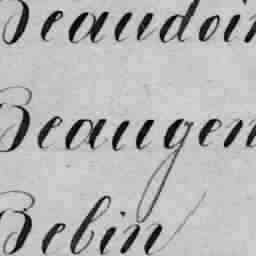 Beaudoin
Beaugen
Bebin